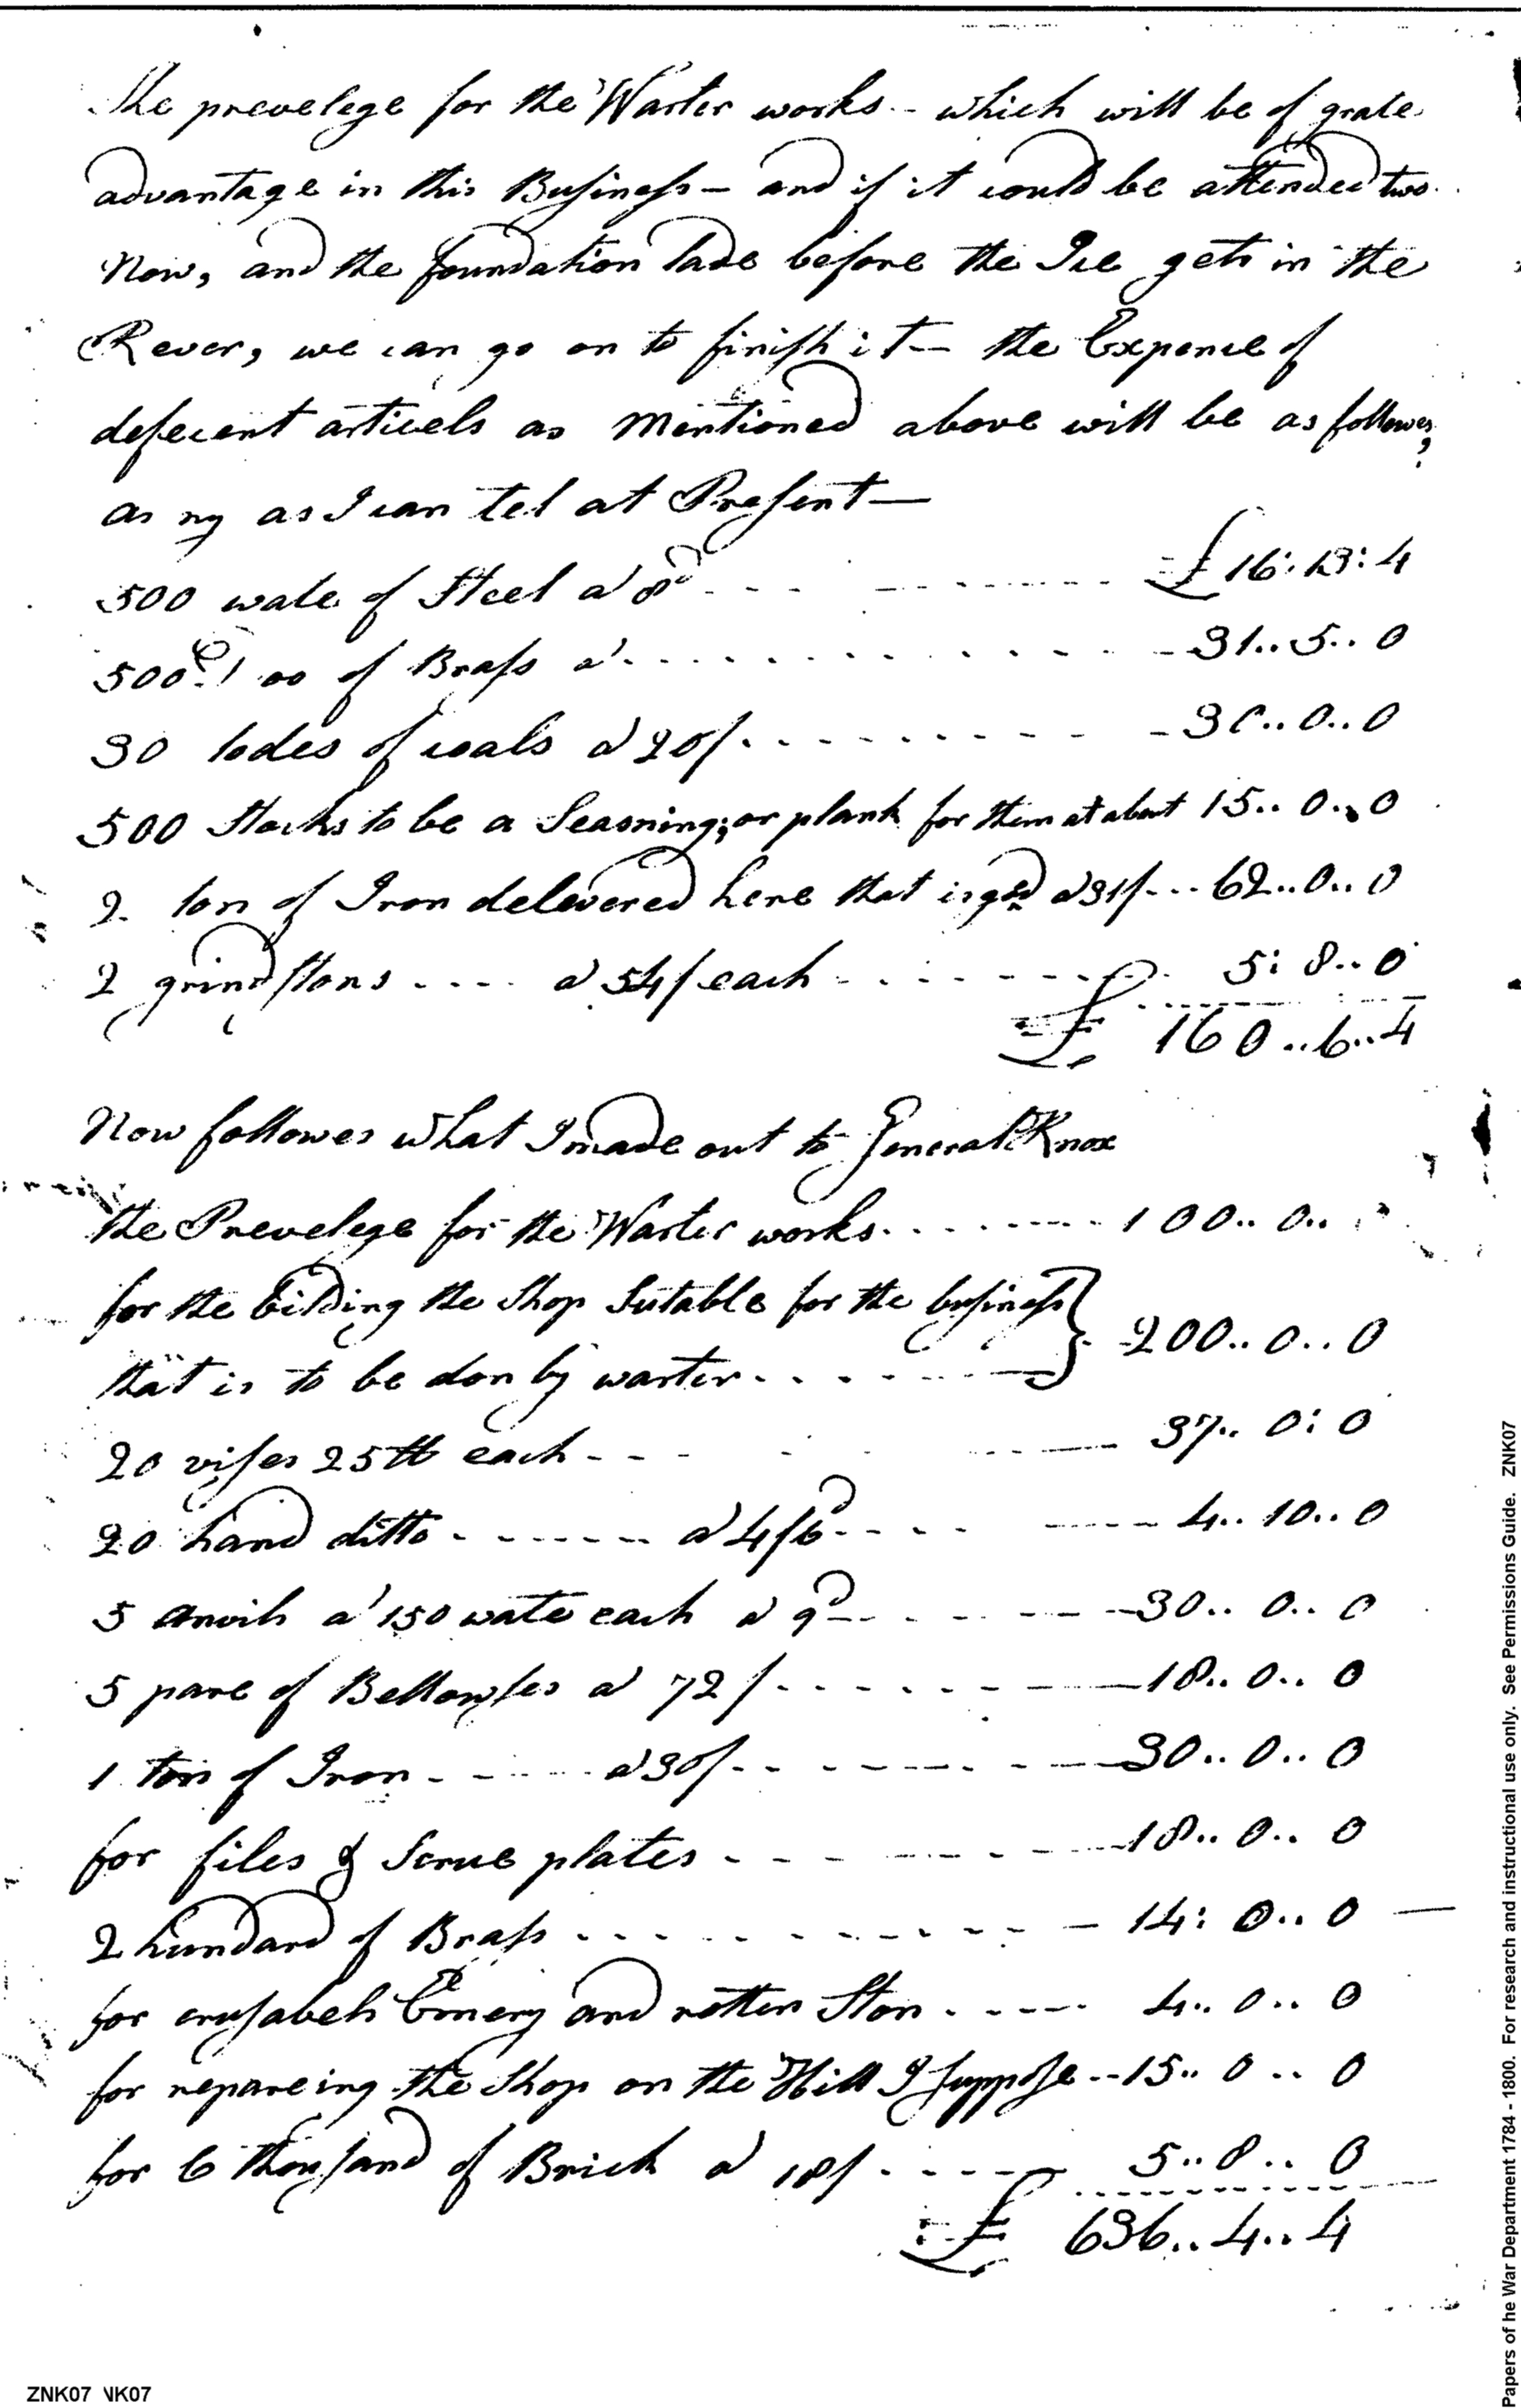 The prevelege for the Warter works - which will be of grate
advantage in this Business - and if it could be attended two
Now, and the foundation lade before the Ice gets in the
Rever, we can go on to finish it - the Expence of
deferent articels as Mentioned above will be as followes,
as ny as I can tel at Present -
500 wate of Steel a 8d - - - £16:13:4
500 of Brass a - - - 31..5..0
30 lodes of coals a 20/ - - - 30..0..0
500 Stocks to be a Seasoning; or plank for them at about 15..0..0
2 ton of Iron delevered here that is gd a 31/ - - - 62..0..0
2 grindstons - - - a 54/ each - - - 5:8..0
£ 160..6..4
Now followes what I made out to General Knox
the Prevelege for the Warter works - - - 100..0..
for the bilding the Shop Sutable for the business } 200..0..0
that is to be don by warter - - -
20 vises 25tt each - - - 37..0:0
20 hand ditto - - - a 4/6d - - - 4..10..0
5 anvils a 150 wate each a 9d - - - 30..0..0
5 pare of Bellowses a 72/ - - - 18..0..0
1 ton of Iron - - - a 30/ - - - 30..0..0
for files & Scrue plates - - - 18..0..0
2 hundard of Brass - - - 14:0..0 —
for crusabels Emery and rotten Ston - - - 4..0..0
for repareing the Shop on the Hill I suppose - - 15..0..0
for 6 thousand of Brick a 18/ - - - 5..8..0
£ 636..4..4
Papers of he War Department 1784 - 1800. For research and instructional use only. See Permissions Guide. ZNK07
ZNK07 NK07